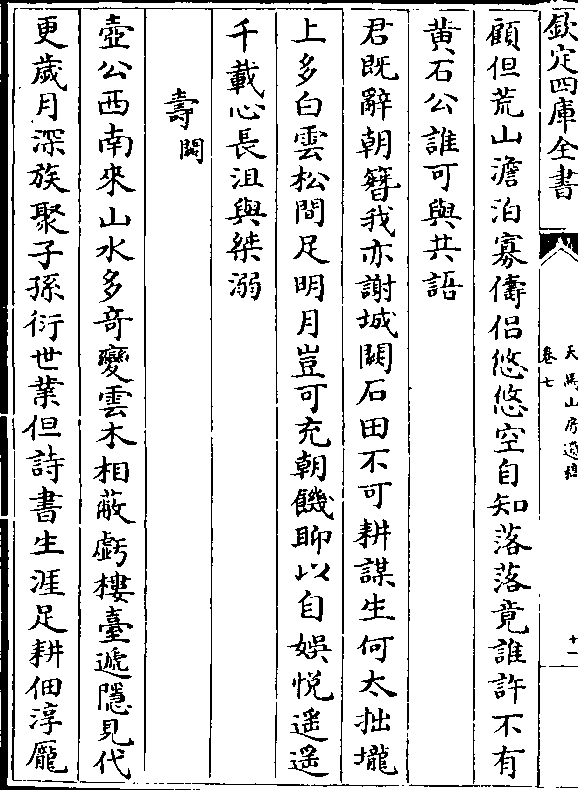 欽定四庫全書
天馬山房遺稿
卷七
十一
顧但荒山澹泊寡儔侣悠悠空自知落落竟誰許不有
黄石公誰可與共語
君既辭朝簪我亦謝城闕石田不可耕謀生何太拙壠
上多白雲松間足明月豈可充朝饑聊以自娯悦遥遥
千載心長沮與桀溺
壽闕
壺公西南來山水多奇變雲木相蔽虧樓臺遞隱見代
更歲月深族聚子孫衍世業但詩書生涯足耕佃淳龐